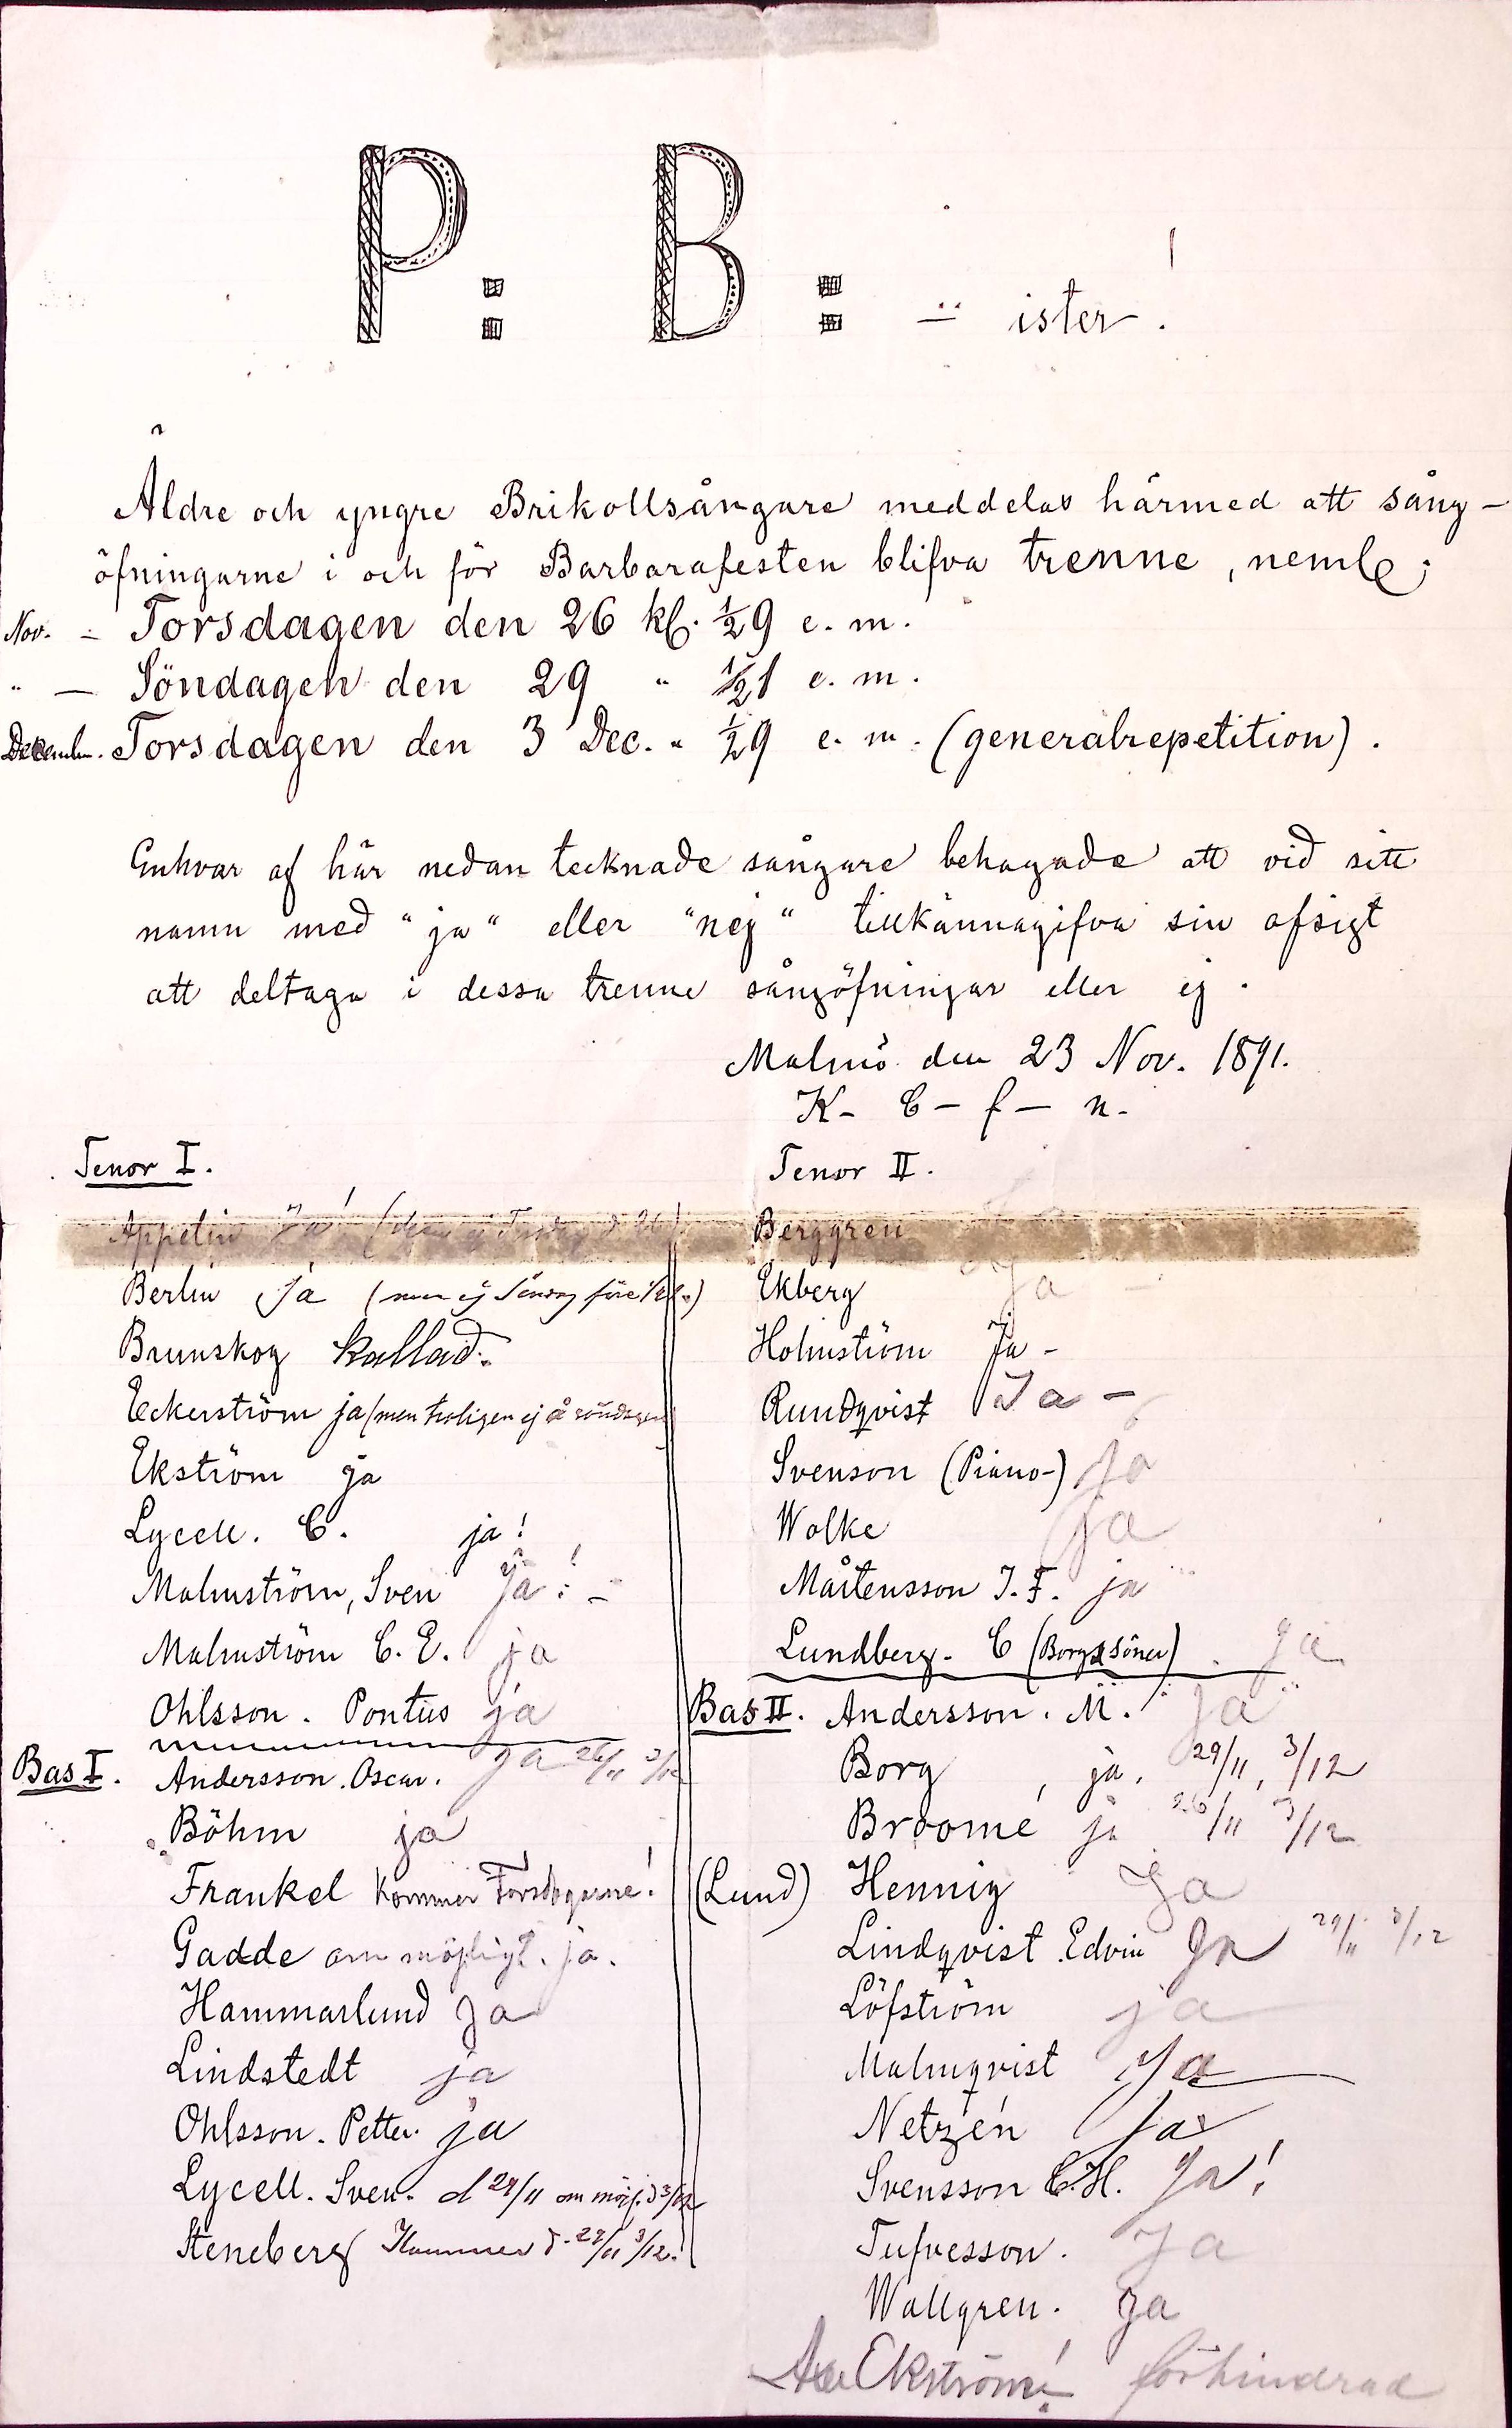 P: B: - ister!
Äldre och yngre Brikollsångare meddelas härmed att sång-
öfningarne i och för Barbarafesten blifva trenne, neml:
Nov. - Torsdagen den 26 kl. ½9 e. m.
" - Söndagen den 29 " ½1 e. m.
Decemb. Torsdagen den 3 Dec. " ½9 e. m. (generalrepetition).
Enhvar af här nedan tecknade sångare behagade att vid sitt
namn med "ja" eller "nej" tillkännagifva sin afsigt
att deltaga i dessa trenne sångöfningar eller ej.
Malmö den 23 Nov. 1891.
K- C- f- n-
Tenor I.
Appelin Ja!
Berlin Ja (men ej Söndag före
Brunskog kallad.
Eckerström ja (men troligen ej å söndagen
Ekström ja
Lycell. C. ja!
Malmström, Sven Ja!
Malmström C. E. ja
Ohlsson. Pontus ja
Bas I. Andersson. Oscar. Ja 26/11 3/12
Böhm ja
Frankel kommer Torsdagarne!
Gadde om möjligt. ja.
Hammarlund Ja
Lindstedt ja
Ohlsson. Petter. ja
Lycell. Sven. d 29/11 om möjl. d 3/12
Steneberg Kommer d. 29/11 3/12.
Tenor II.
Berggren
Ekberg Ja -
Holmström Ja -
Rundqvist Ja -
Svenson (Piano-) Ja
Wolke Ja
Mårtensson J. F. ja
Lundberg. C (Borg & Söner). Ja
Bas II. Andersson. M. Ja
Borg, ja, 29/11, 3/12
Broomé ja 26/11 3/12
(Lund) Hennig Ja
Lindqvist. Edvin Ja 29/11 3/12
Löfström ja
Malmqvist Ja
Netzén Ja
Svensson C. H. Ja!
Tufvesson. Ja
Wallgren. Ja
Ekström! förhindrad